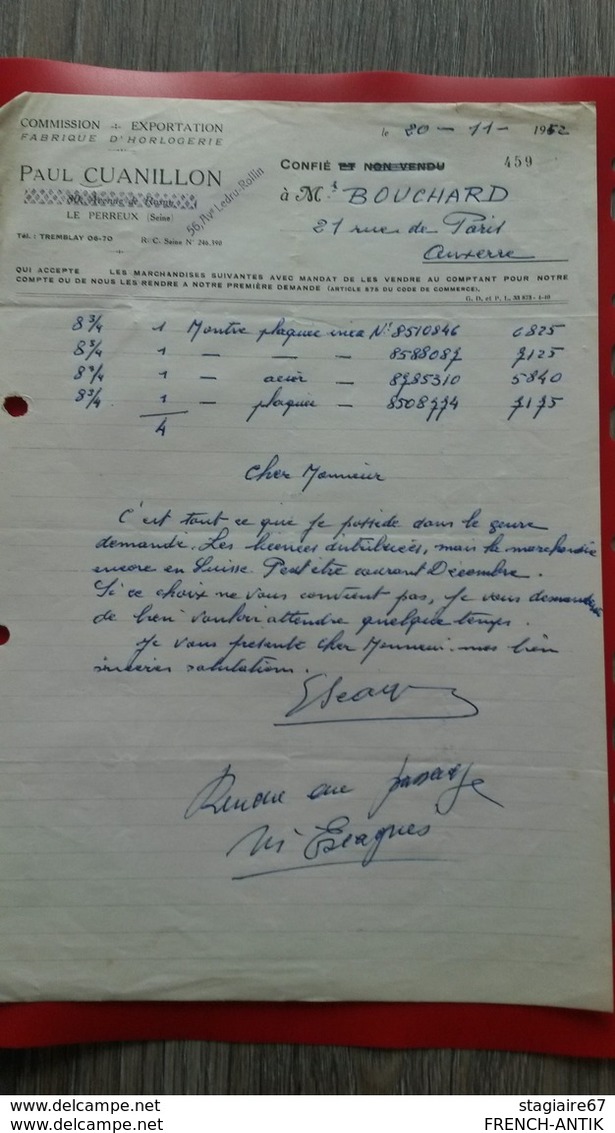 COMMISSION EXPORTATION
FABRIQUE D'HORLOGERIE
PAUL CUANILLON
56, Ave Ledru-Rollin
80, Avenue de Rosny
LE PERREUX (Seine)
Tél. : TREMBLAY 06-70 R. C. Seine N° 246.190
le 20 - 11 - 1952
CONFIÉ ET NON VENDU 459
à M. BOUCHARD
21 rue de Paris
Auxerre
QUI ACCEPTE LES MARCHANDISES SUIVANTES AVEC MANDAT DE LES VENDRE AU COMPTANT POUR NOTRE
COMPTE OU DE NOUS LES RENDRE A NOTRE PREMIÈRE DEMANDE (ARTICLE 575 DU CODE DE COMMERCE).
8 3/4 1 Montre plaquée inca N° 8510846 6825
8 3/4 1 — — — 8588087 7125
8 3/4 1 — acier — 8785310 5840
8 3/4 1 — plaquée — 8508774 7175
4
Cher Monsieur
C'est tout ce que je possède dans le genre
demandé. Les licences distribuées, mais la marchandise
encore en Suisse. Peut être courant Décembre.
Si ce choix ne vous convient pas, je vous demande
de bien vouloir attendre quelque temps.
Je vous présente Cher Monsieur mes bien
sincères salutations.
Rendu au passage
stagiaire67
FRENCH-ANTIK